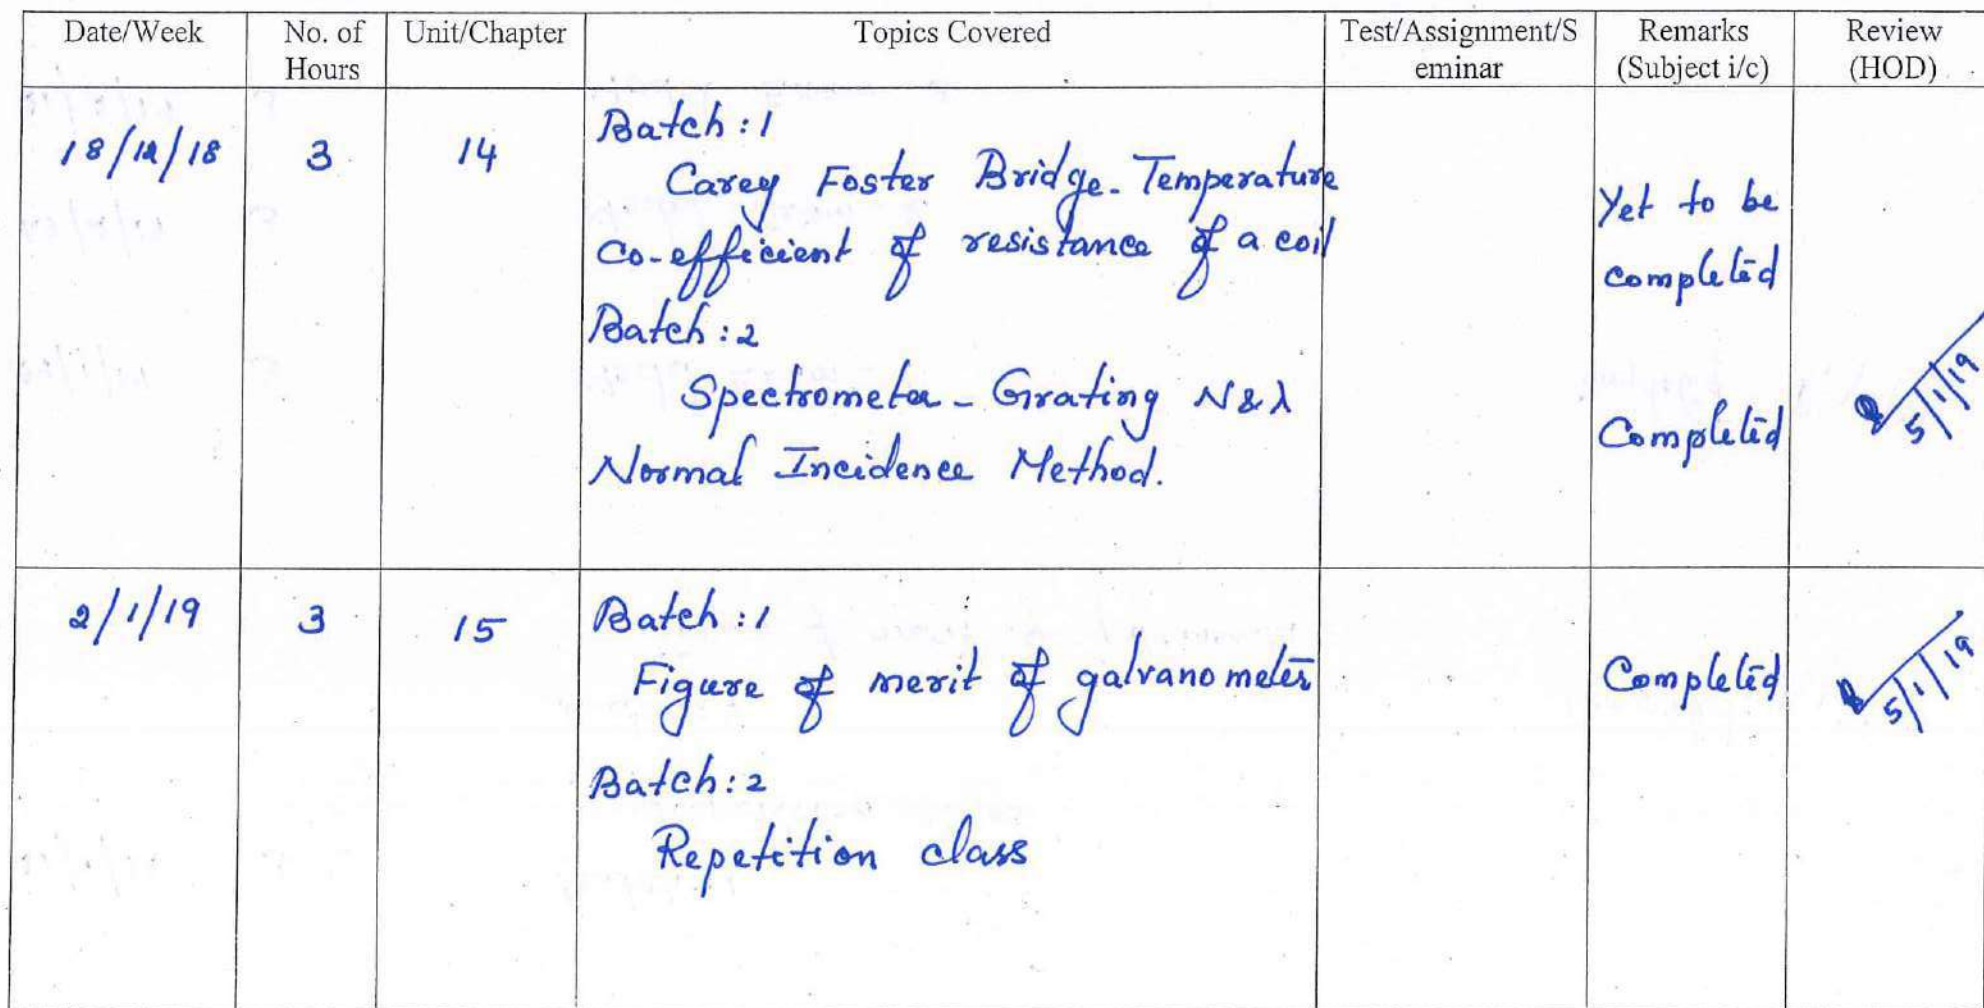 Date/Week No. of Hours Unit/Chapter Topics Covered Test/Assignment/S eminar Remarks (Subject i/c) Review (HOD)
18/12/18 3 14
Batch : 1
Carey Foster Bridge - Temperature
Co-efficient of resistance of a coil
Batch : 2
Spectrometer - Grating N & λ
Normal Incidence Method.
Yet to be
completed
Completed
5/1/19
2/1/19 3 15
Batch : 1
Figure of merit of galvanometer
Batch : 2
Repetition class
Completed
5/1/19